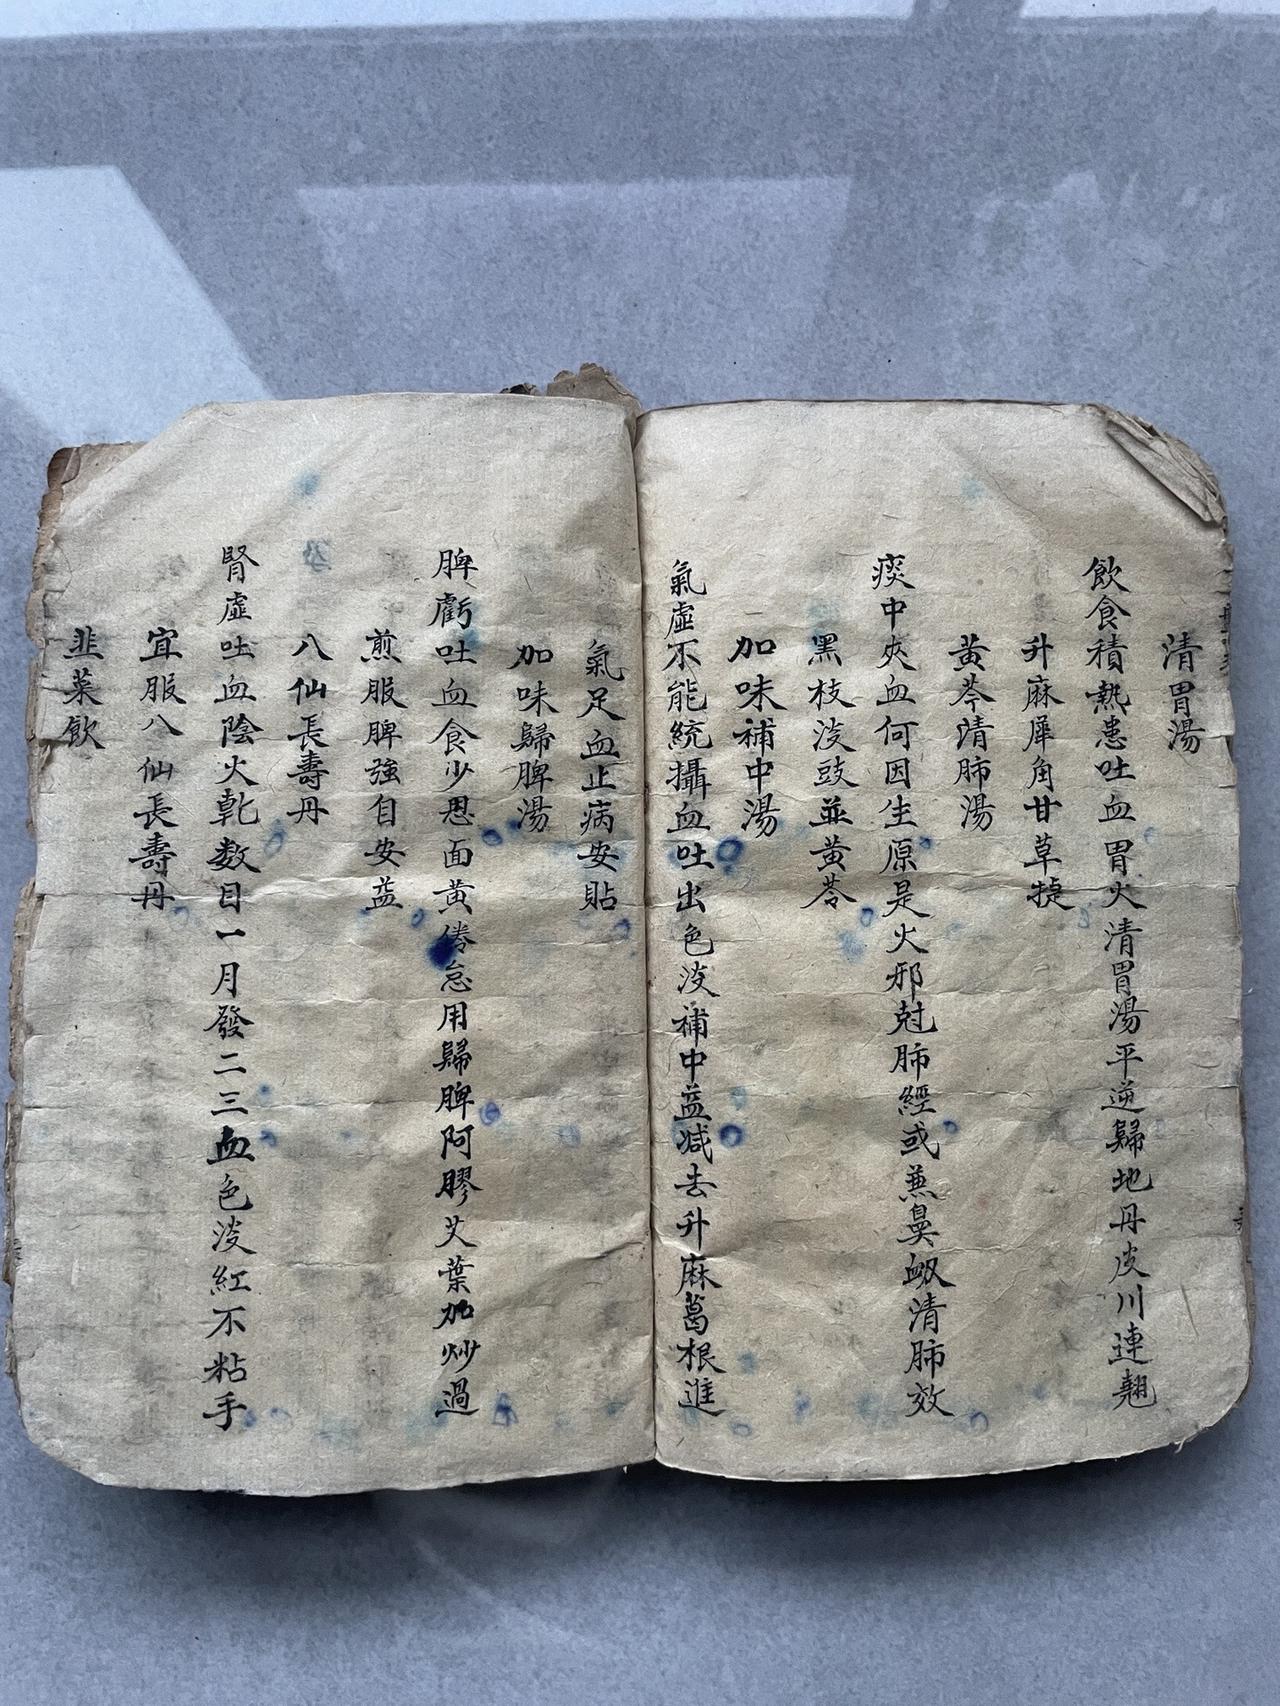 清胃湯
飲食積熱患吐血胃火清胃湯平逆歸地丹皮川連翹
升麻犀角甘草㨗
黃芩清肺湯
痰中夾血何因生原是火邪尅肺經或兼鼻衂清肺效
黑枝淡豉並黃苓
加味補中湯
氣虛不能統攝血吐出色淡補中益減去升麻葛根進
氣足血止病安貼
加味歸脾湯
脾虧吐血食少思面黃倦怠用歸脾阿膠艾葉加炒過
煎服脾強自安益
八仙長壽丹
腎虛吐血陰火乾数目一月發二三血色淡紅不粘手
宜服八仙長壽丹
韭菜飲